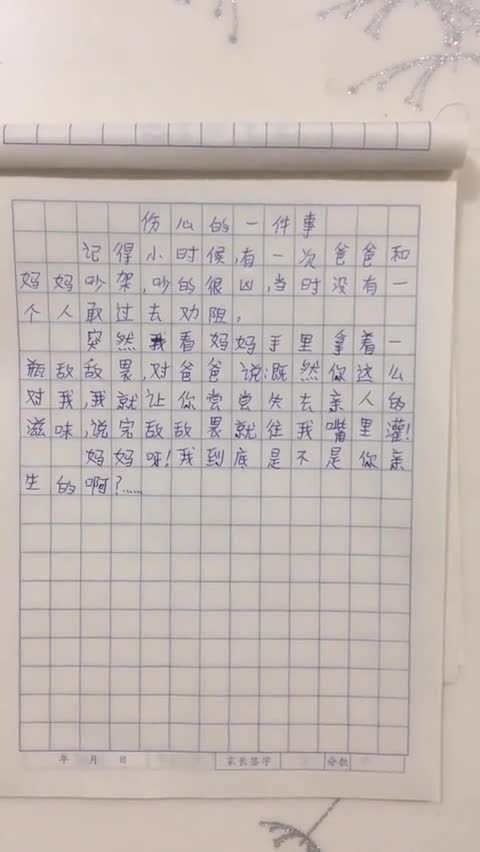 伤心的一件事
记得小时候,有一次爸爸和
妈妈吵架,吵的很凶,当时没有一
个人敢过去劝阻。
突然我看妈妈手里拿着一
瓶敌敌畏,对爸爸说:既然你这么
对我,我就让你尝尝失去亲人的
滋味,说完敌敌畏就往我嘴里灌!
妈妈呀!我到底是不是你亲
生的啊?……
年 月 日 家长签字 分数